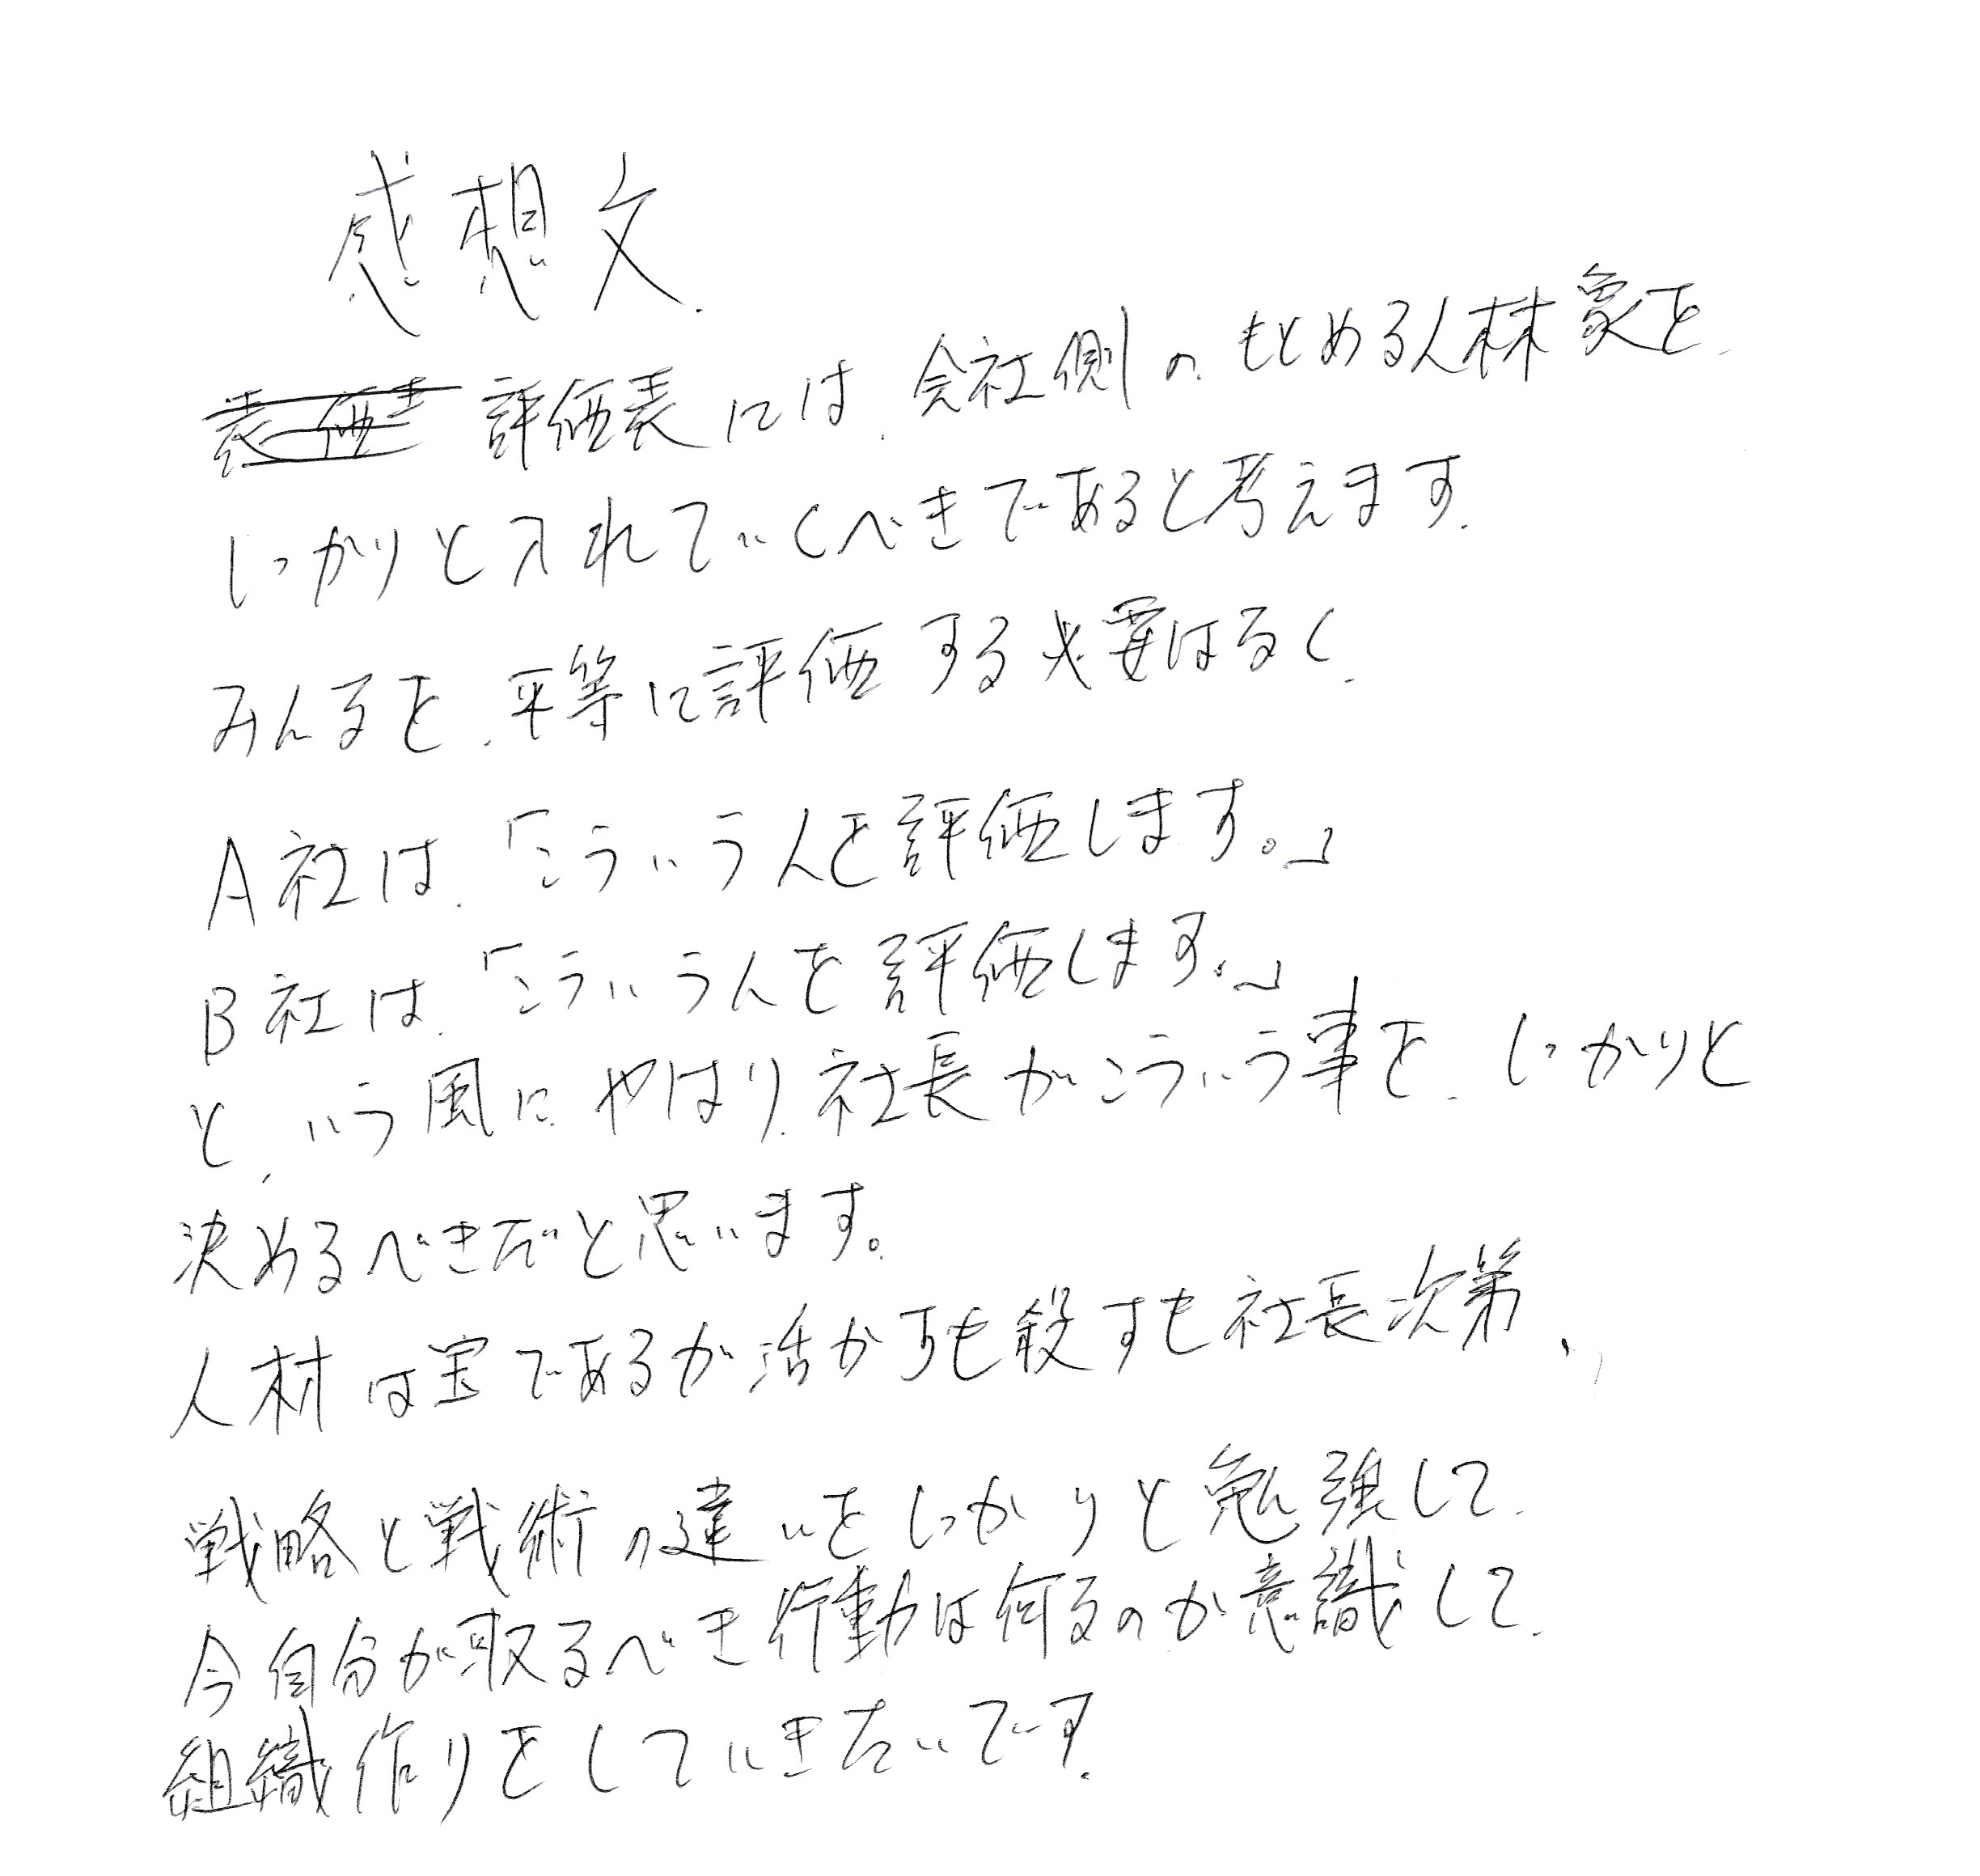 感想文.
評価表には、会社側の、もとめる人材象を、
しっかりと入れていくべきであると考えます.
みんなを、平等に評価する必要はなく、
A社は、「こういう人を評価します。」
B社は、「こういう人を評価します。」
と、いう風に、やはり、社長がこういう事を、しっかりと
決めるべきだと思います。
人材は宝であるが活かすも殺すも社長次第、
戦略と戦術の違いをしっかりと勉強して、
今自分が取るべき行動は何なのか意識して、
組織作りをしていきたいです.